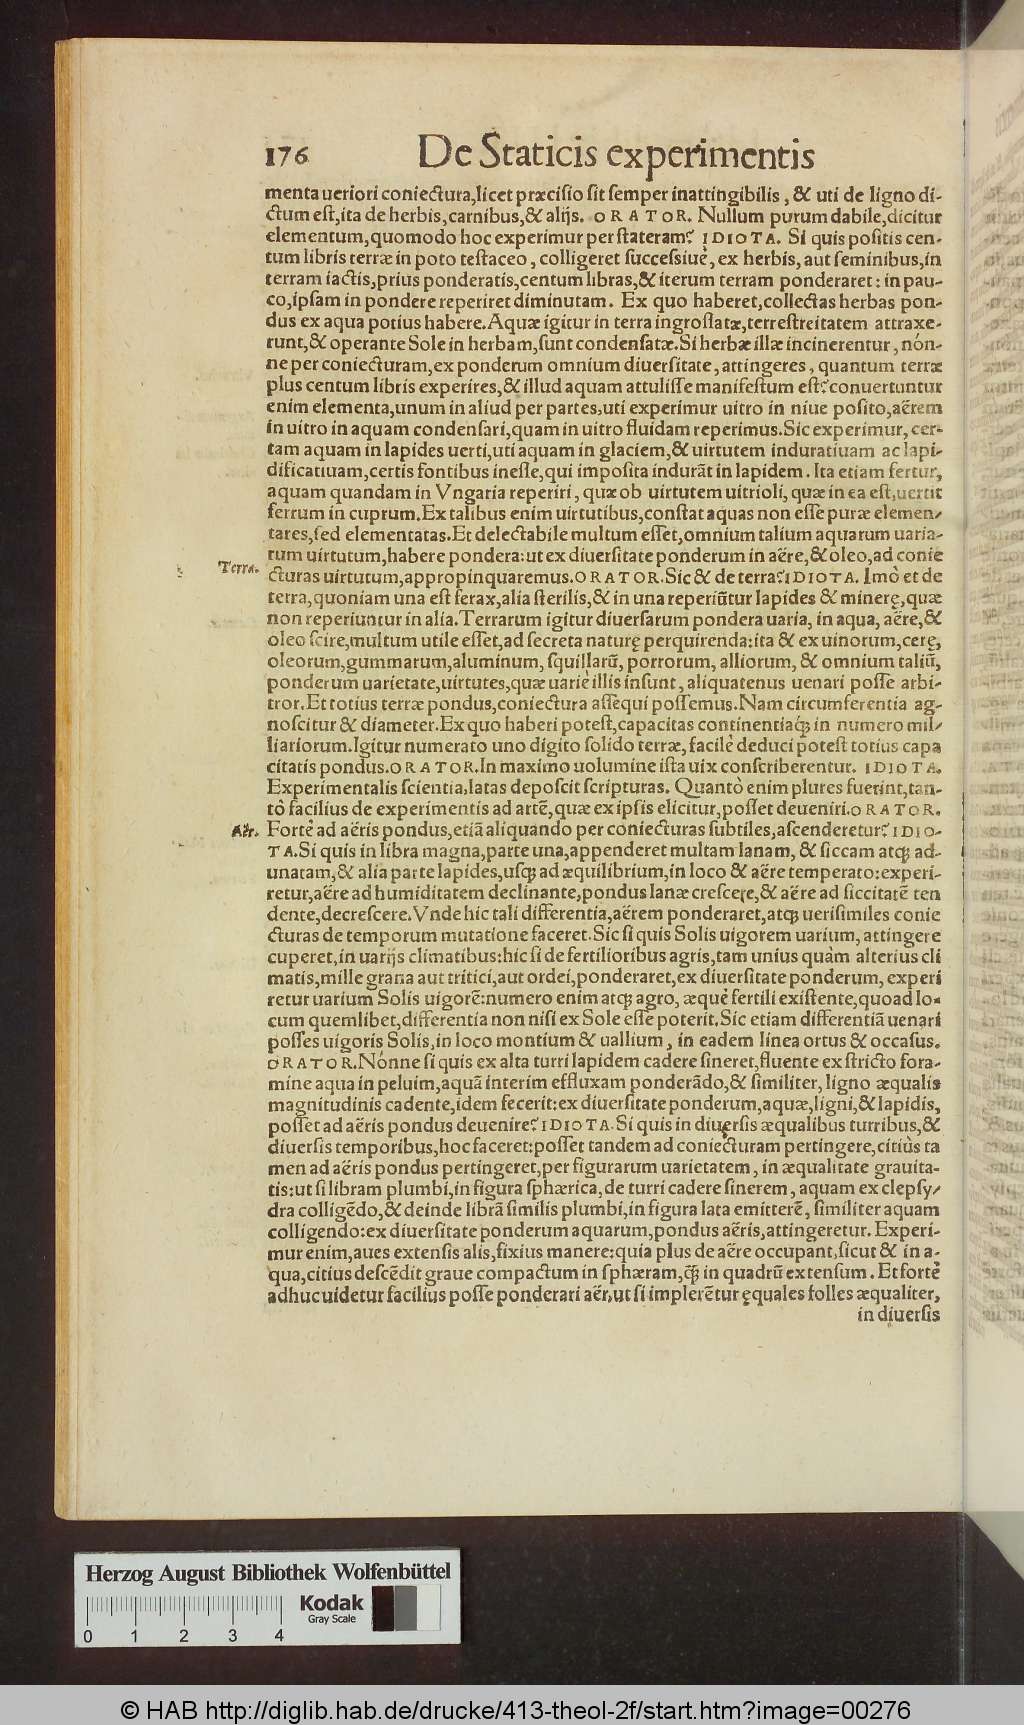 176 De Staticis experimentis
menta ueriori coniectura,licet præcisio sit semper inattingibilis, & uti de ligno di-
ctum est,ita de herbis,carnibus,& alijs. ORATOR. Nullum purum dabile,dicitur
elementum,quomodo hoc experimur per stateram? IDIOTA. Si quis positis cen-
tum libris terræ in poto testaceo, colligeret successiuè, ex herbis, aut seminibus,in
terram iactis,prius ponderatis,centum libras,& iterum terram ponderaret: in pau-
co,ipsam in pondere reperiret diminutam. Ex quo haberet,collectas herbas pon-
dus ex aqua potius habere.Aquæ igitur in terra ingrossatæ,terrestreitatem attraxe-
runt,& operante Sole in herbam,sunt condensatæ.Si herbæ illæ incinerentur, nón-
ne per coniecturam,ex ponderum omnium diuersitate, attingeres, quantum terræ
plus centum libris experires,& illud aquam attulisse manifestum est? conuertuntur
enim elementa,unum in aliud per partes,uti experimur uitro in niue posito,aërem
in uitro in aquam condensari,quam in uitro fluidam reperimus.Sic experimur, cer-
tam aquam in lapides uerti,uti aquam in glaciem,& uirtutem induratiuam ac lapi-
dificatiuam,certis fontibus inesse,qui imposita indurãt in lapidem. Ita etiam fertur,
aquam quandam in Vngaria reperiri, quæ ob uirtutem uitrioli, quæ in ea est,uertit
ferrum in cuprum.Ex talibus enim uirtutibus,constat aquas non esse puræ elemen-
tares,sed elementatas.Et delectabile multum esset,omnium talium aquarum uaria-
rum uirtutum,habere pondera:ut ex diuersitate ponderum in aëre,& oleo,ad conie
Terra.
cturas uirtutum,appropinquaremus.ORATOR.Sic & de terra? IDIOTA. Imò et de
terra,quoniam una est ferax,alia sterilis,& in una reperiũtur lapides & minerę,quæ
non reperiuntur in alia.Terrarum igitur diuersarum pondera uaria, in aqua, aëre,&
oleo scire,multum utile esset,ad secreta naturę perquirenda:ita & ex uinorum,cerę,
oleorum,gummarum,aluminum, squillarũ, porrorum, alliorum, & omnium taliũ,
ponderum uarietate,uirtutes,quæ uariè illis insunt, aliquatenus uenari posse arbi-
tror.Et totius terræ pondus,coniectura assequi possemus.Nam circumferentia ag-
noscitur & diameter.Ex quo haberi potest,capacitas continentiaq́; in numero mil-
liariorum.Igitur numerato uno digito solido terræ,facilè deduci potest totius capa
citatis pondus.ORATOR.In maximo uolumine ista uix conscriberentur. IDIOTA.
Experimentalis scientia,latas deposcit scripturas. Quantò enim plures fuerint,tan-
tò facilius de experimentis ad artẽ,quæ ex ipsis elicitur,posset deueniri.ORATOR.
Aër.
Fortè ad aëris pondus,etiã aliquando per coniecturas subtiles,ascenderetur? IDIO-
TA.Si quis in libra magna,parte una,appenderet multam lanam, & siccam atq; ad-
unatam,& alia parte lapides,usq; ad æquilibrium,in loco & aëre temperato:experi-
retur,aëre ad humiditatem declinante,pondus lanæ crescere,& aëre ad siccitatẽ ten
dente,decrescere.Vnde hic tali differentia,aërem ponderaret,atq; uerisimiles conie
cturas de temporum mutatione faceret.Sic si quis Solis uigorem uarium, attingere
cuperet,in uarijs climatibus:hic si de fertilioribus agris,tam unius quàm alterius cli
matis,mille grana aut tritici,aut ordei,ponderaret,ex diuersitate ponderum, experi
retur uarium Solis uigorẽ:numero enim atq; agro, æquè fertili existente,quoad lo-
cum quemlibet,differentia non nisi ex Sole esse poterit.Sic etiam differentiã uenari
posses uigoris Solis,in loco montium & uallium, in eadem linea ortus & occasus.
ORATOR.Nónne si quis ex alta turri lapidem cadere sineret,fluente ex stricto fora-
mine aqua in peluim,aquã interim effluxam ponderãdo,& similiter, ligno æqualis
magnitudinis cadente,idem fecerit:ex diuersitate ponderum,aquæ,ligni,& lapidis,
posset ad aëris pondus deuenire? IDIOTA.Si quis in diuersis æqualibus turribus,&
diuersis temporibus,hoc faceret:posset tandem ad coniecturam pertingere,citiùs ta
men ad aëris pondus pertingeret,per figurarum uarietatem, in æqualitate grauita-
tis:ut si libram plumbi,in figura sphærica, de turri cadere sinerem, aquam ex clepsy-
dra colligẽdo,& deinde librã similis plumbi,in figura lata emitterẽ, similiter aquam
colligendo:ex diuersitate ponderum aquarum,pondus aëris,attingeretur. Experi-
mur enim,aues extensis alis,fixius manere:quia plus de aëre occupant,sicut & in a-
qua,citius descẽdit graue compactum in sphæram,q̃; in quadrũ extensum. Et fortè
adhuc uidetur facilius posse ponderari aër,ut si implerẽtur ęquales folles æqualiter,
in diuersis
Herzog August Bibliothek Wolfenbüttel
Kodak
Gray Scale
0 1 2 3 4
© HAB http://diglib.hab.de/drucke/413-theol-2f/start.htm?image=00276